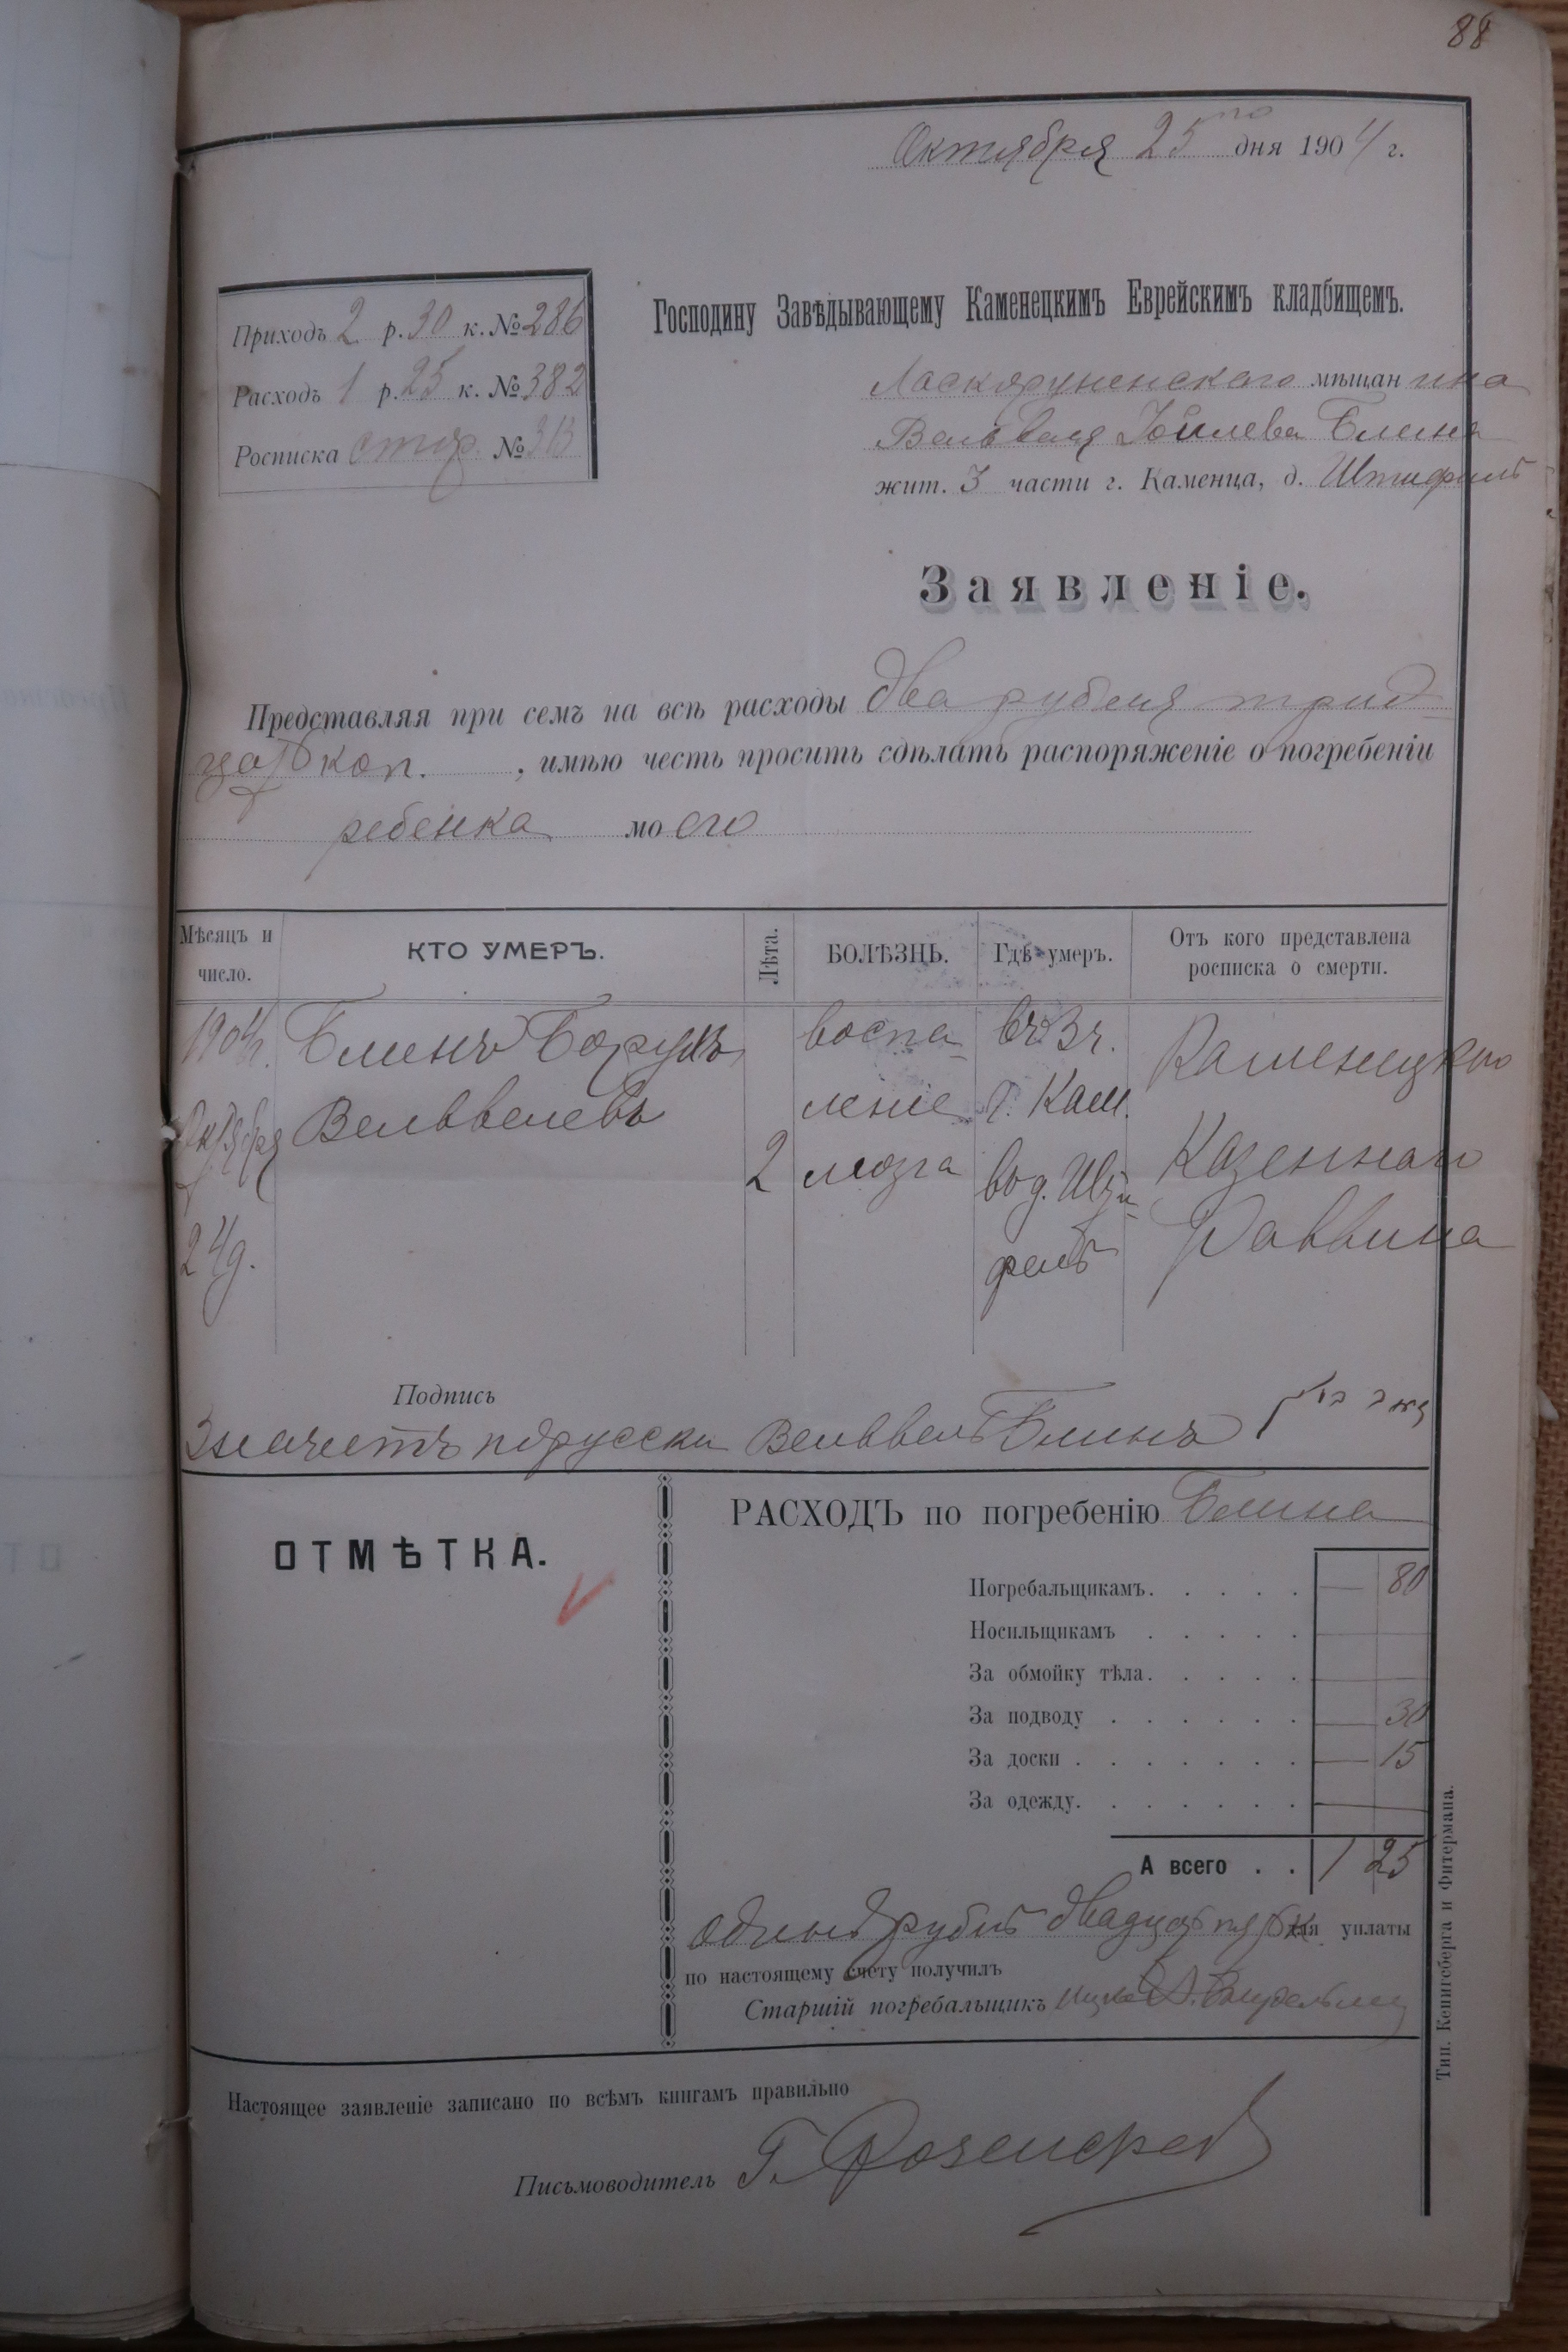 88
Октября 25го дня 1904 г.
Приходъ 2 р. 30 к. № 286
Расходъ 1 р. 25 к. № 382
Росписка стор. № 313
Господину Завѣдывающему Каменецкимъ Еврейскимъ кладбищемъ.
мѣщанина
Вельвеля Блина
жит. 3 части г. Каменца, д. Штифель
Заявленіе.
Представляя при семъ на всѣ расходы два рубля трид-
цать коп., имѣю честь просить сдѣлать распоряженіе о погребеніи
ребенка моего
Мѣсяцъ и число.
КТО УМЕРЪ.
Лѣта.
БОЛѢЗНЬ.
Гдѣ умеръ.
Отъ кого представлена росписка о смерти.
1904г.
Октября
24д.
Блинъ Борухъ
Вельвелевъ
2
воспа-
леніе
мозга
въ 3 ч.
г. Кам.
в д. Шти-
фель
Каменецкаго
Казеннаго
Раввина
Подпись
Значитъ по русски Вельвель Блинъ
ОТМѢТКА.
РАСХОДЪ по погребенію Блина
Погребальщикамъ. . . . . — 80
Носильщикамъ . . . . .
За обмойку тѣла. . . . .
За подводу . . . . . . — 30
За доски . . . . . . . — 15
За одежду. . . . . . .
А всего . . 1 25
Одинъ рубль двадцать пять к. для уплаты
по настоящему счету получилъ
Старшій погребальщикъ
Настоящее заявленіе записано по всѣмъ книгамъ правильно
Письмоводитель Г.
Тип. Кенигсберга и Фитермана.